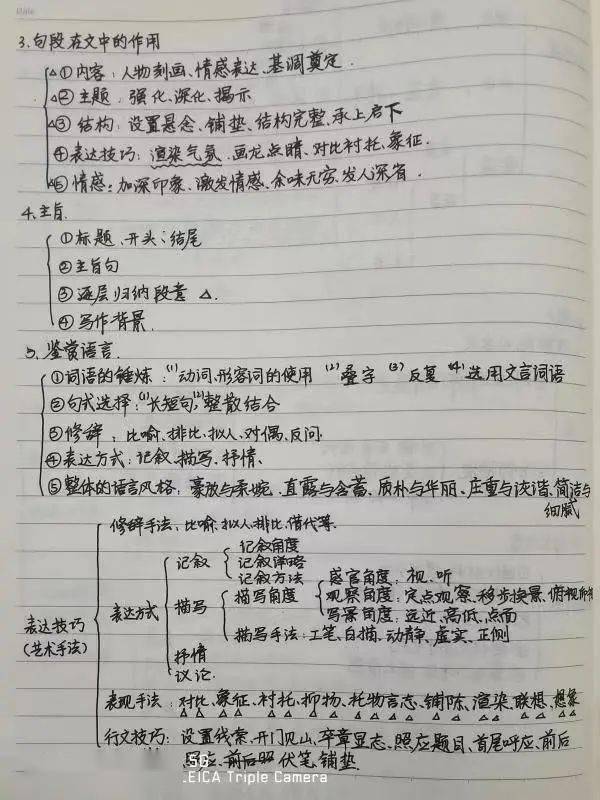 Date
3.句段在文中的作用
△①内容：人物刻画、情感表达、基调奠定.
△②主题：强化、深化、揭示
△③结构：设置悬念、铺垫、结构完整、承上启下
④表达技巧：渲染气氛、画龙点睛、对比衬托、象征.
△⑤情感：加深印象、激发情感、余味无穷、发人深省.
4.主旨.
①标题、开头、结尾
②主旨句
③逐层归纳段意 △.
④写作背景.
5.鉴赏语言.
①词语的锤炼：(1)动词、形容词的使用 (2)叠字 (3)反复 (4)选用文言词语
②句式选择：(1)长短句 (2)整散结合
③修辞：比喻、排比、拟人、对偶、反问.
④表达方式：记叙、描写、抒情.
⑤整体的语言风格：豪放与柔婉、直露与含蓄、质朴与华丽、庄重与诙谐、简洁与
细腻
表达技巧
(艺术手法)
修辞手法：比喻、拟人、排比、借代等.
表达方式
记叙
记叙角度
记叙详略
记叙方法
描写
描写角度
感官角度：视、听
观察角度：定点观察、移步换景、俯视
写景角度：远近、高低、点面
描写手法：工笔、白描、动静、虚实、正侧
抒情
议论.
表现手法：对比、象征、衬托、抑扬、托物言志、铺陈、渲染、联想、想象
△△ △△ △△ △△ △△△△ △△ △△ △△ △△
行文技巧：设置线索、开门见山、卒章显志、照应题目、首尾呼应、前后
照应、前后照 伏笔、铺垫.
5G
LEICA Triple Camera